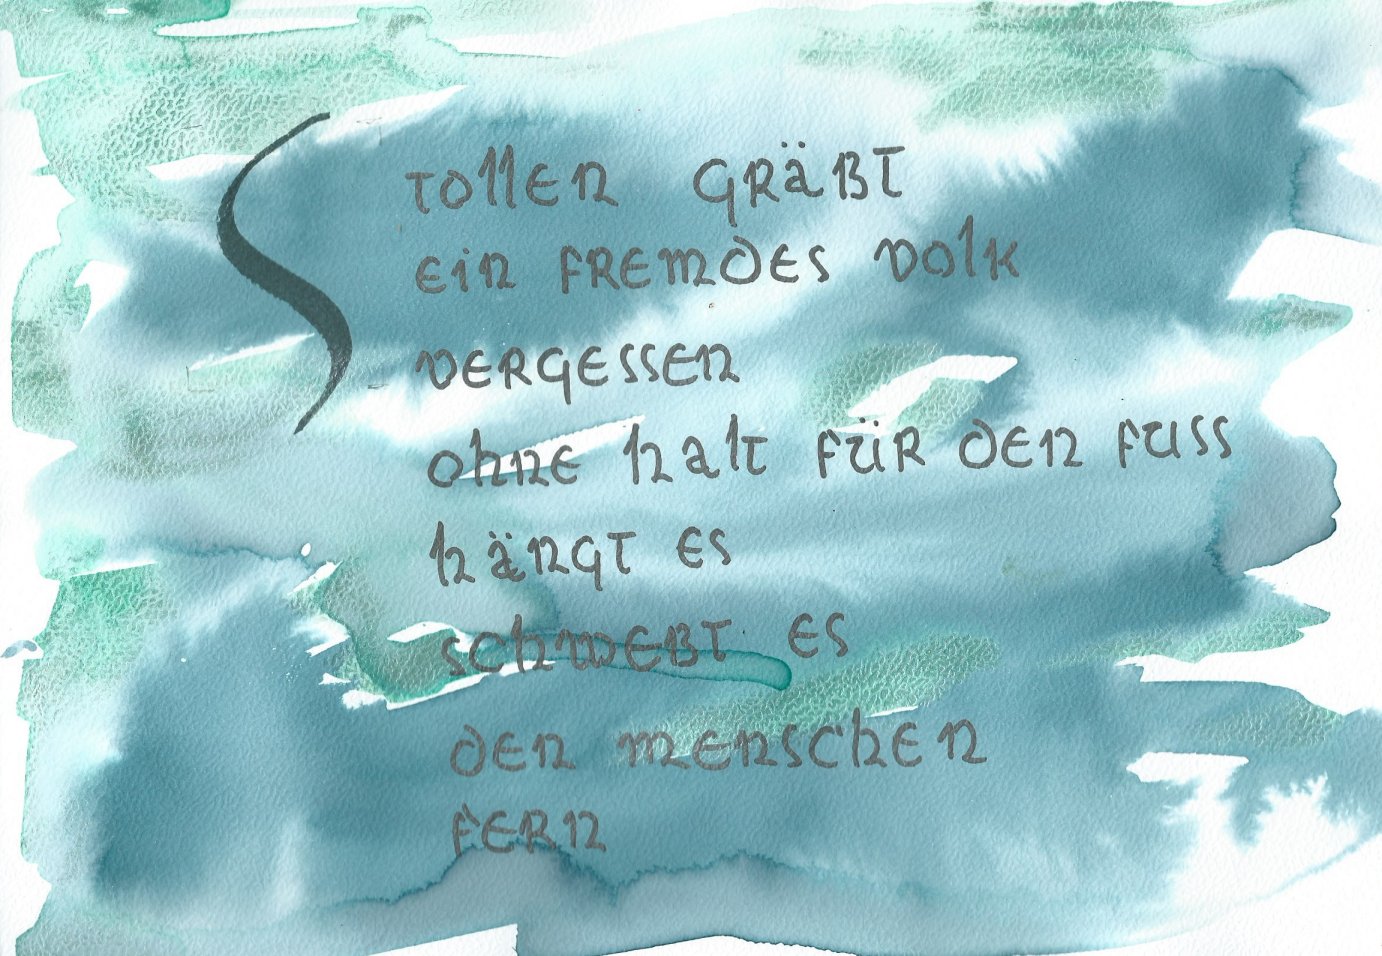 STOLLEN GRÄBT
EIN FREMDES VOLK
VERGESSEN
OHNE HALT FÜR DEN FUSS
HÄNGT ES
SCHWEBT ES
DEN MENSCHEN
FERN